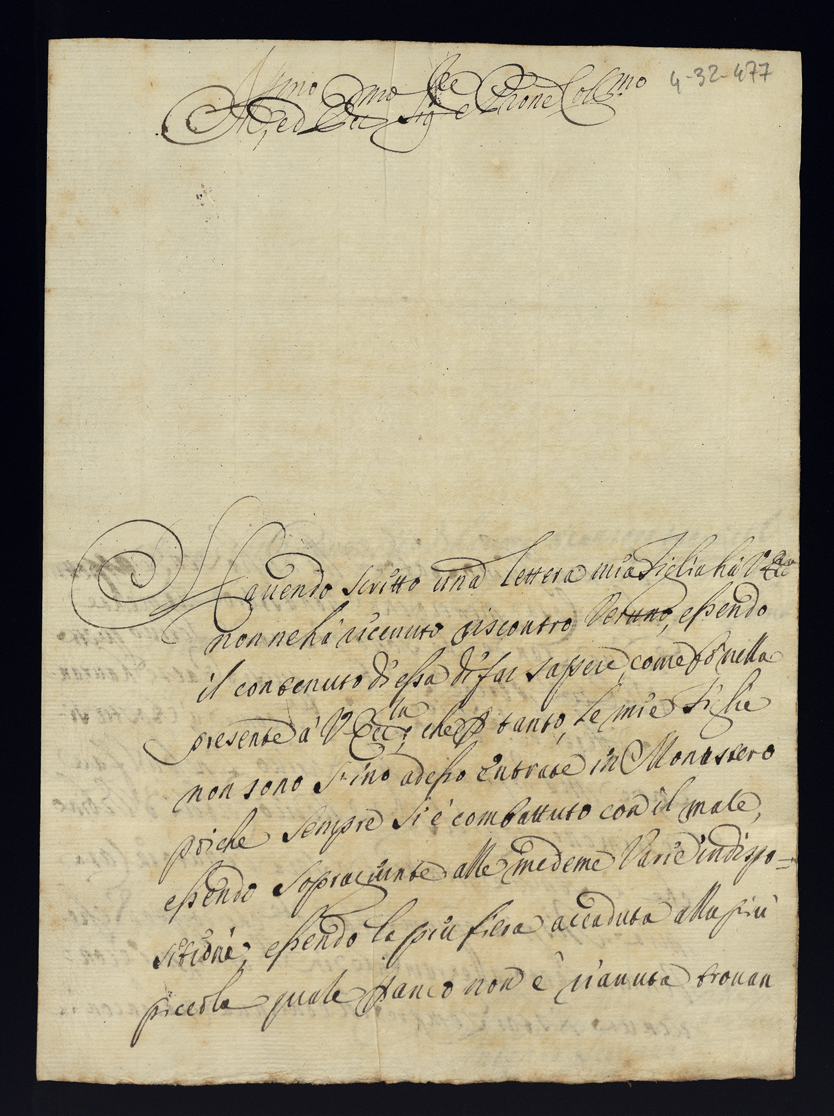 4-32-477
Ill.mo ed Ecc.mo Sig.re e Prone Coll.mo
Hauendo scritto una lettera mia Figlia hà V. Ecc.a
non ne hà riceuuto riscontro Veruno, essendo
il contenuto di essa di far sapere come fò nella
presente à V. Ecc.la, che p tanto, le mie Figlie
non sono sino adesso entrate in Monastero
poiche sempre si è combattuto con il male,
essendo sopragiunte alle medeme Varie indispo=
sitioni, essendo la più fiera accaduta alla più
piccola quale p anco non è riauuta trouan